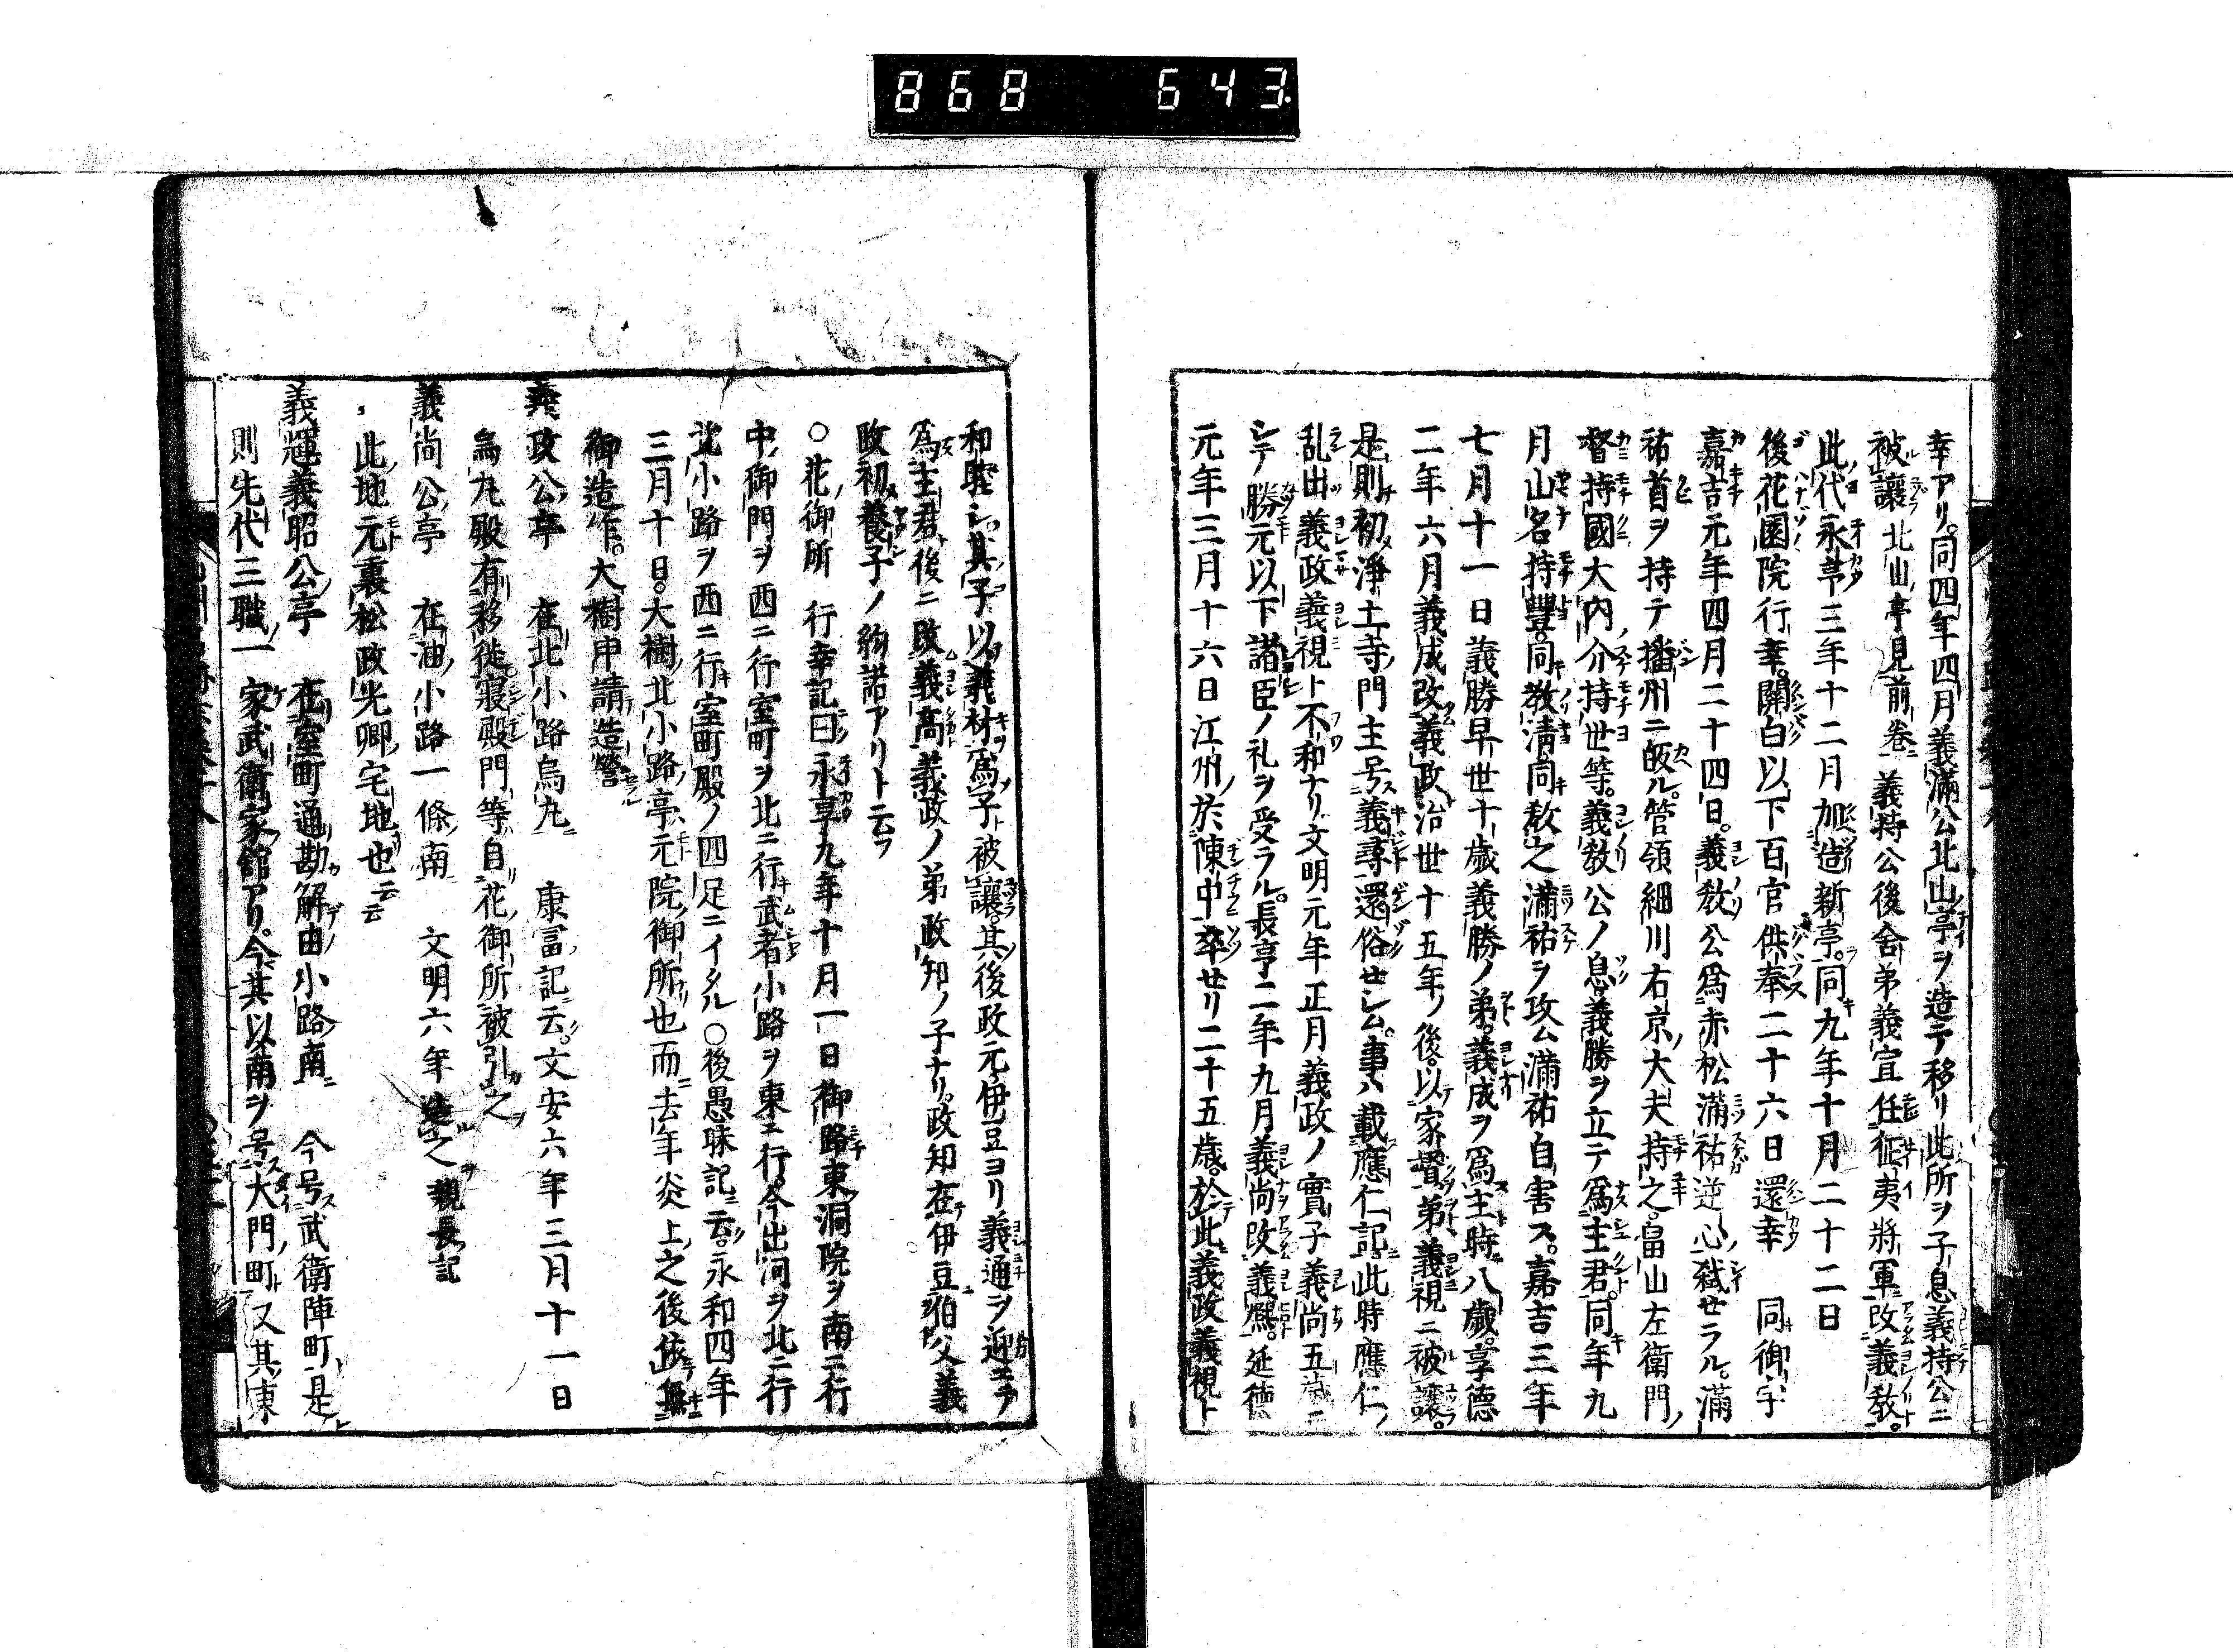 868 643
幸アリ。同四年四月義滿公北山亭ヲ造テ移リ此所ヲ子息義持公ニ
被讓 北山亭見前卷 義持公後舍弟義宣任征夷將軍改義教。
此代永享三年十二月加造新亭。同九年十月二十二日
後花園院行幸。關白以下百官供奉二十六日還幸 同御宇
嘉吉元年四月二十四日。義教公爲赤松滿祐逆心弑セラル。滿
祐首ヲ持テ播州ニ皈ル。管領細川右京大夫持之。畠山左衛門
督持國大内介持世等。義教公ノ息義勝ヲ立テ爲主君。同年九
月山名持豐。同教清同教之滿祐ヲ攻ム滿祐自害ス。嘉吉三年
七月十一日義勝早世十歲義勝ノ弟。義成ヲ爲主時八歲。享德
二年六月義成改義政治世十五年ノ後。以家督弟義視ニ被讓。
是則初淨土寺門主号義尋還俗セシム。事ハ載應仁記此時應仁ノ
乱出義政義視ト不和ナリ文明元年正月義政ノ實子義尚五歲ニ
シテ勝元以下諸臣ノ礼ヲ受ラル。長享二年九月義尚改義熈。延德
元年三月十六日江州於陳中卒セリ二十五歲。於此義政義視ト
和睦シ其子以義材爲子被讓。其後政元伊豆ヨリ義通ヲ迎エテ
爲主君後ニ改義高義政ノ弟政知ノ子ナリ。政知在伊豆伯父義
政初養子ノ約諾アリト云フ
○花御所 行幸記曰永享九年十月一日御路東洞院ヲ南ニ行
中御門ヲ西ニ行室町ヲ北ニ行武者小路ヲ東ニ行今出河ヲ北ニ行
北小路ヲ西ニ行室町殿ノ四足ニイタル ○後愚昧記云永和四年
三月十日。大樹北小路亭元院御所也而去年炎上之後依無
御造作。大樹申請造營
義政公亭 在北小路烏丸 康冨記云。文安六年三月十一日
烏丸殿有移徙。寢殿門等自花御所被引之
義尚公亭 在油小路一條南 文明六年造之親長記
此地元裏松政光卿宅地也云云
義輝義昭公亭 在室町通勘解由小路南 今号武衛陣町是
則先代三職一家武衛家舘アリ。今其以南ヲ号大門町又其東